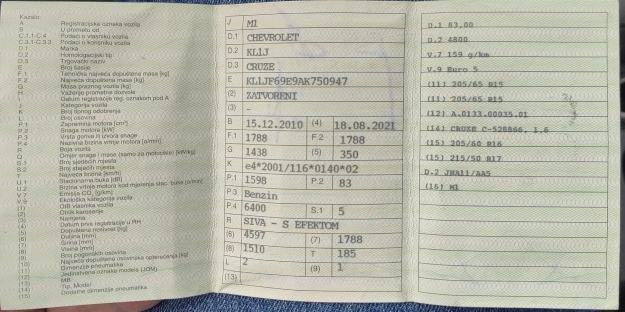 Kazalo:
A Registracijska oznaka vozila
B U prometu od
C.1.1-C.4 Podaci o vlasniku vozila
C.3.1-C.3.3 Podaci o korisniku vozila
D.1 Marka
D.2 Homologacijski tip
D.3 Trgovački naziv
E Broj šasije
F.1 Tehnička najveća dopuštena masa [kg]
F.2 Najveća dopuštena masa [kg]
G Masa praznog vozila [kg]
H Važenje prometne dozvole
I Datum registracije reg. oznakom pod A
J Kategorija vozila
K Broj tipnog odobrenja
L Broj osovina
P.1 Zapremina motora [cm³]
P.2 Snaga motora [kW]
P.3 Vrsta goriva ili izvora snage
P.4 Nazivna brzina vrtnje motora [o/min]
R Boja vozila
Q Omjer snage i mase (samo za motocikle) [kW/kg]
S.1 Broj sjedećih mjesta
S.2 Broj stajaćih mjesta
T Najveća brzina [km/h]
U.1 Stacionarna buka [dB]
U.2 Brzina vrtnje motora kod mjerenja stac. buke [o/min]
V.7 Emisija CO₂ [g/km]
V.9 Ekološka kategorija vozila
(1) OIB vlasnika vozila
(2) Oblik karoserije
(3) Namjena
(4) Datum prve registracije u RH
(5) Dopuštena nosivost [kg]
(6) Duljina [mm]
(7) Širina [mm]
(8) Visina [mm]
(9) Broj pogonskih osovina
(10) Najveće dopušteno osovinsko opterećenje [kg]
(11) Dimenzije pneumatika
(12) Jedinstvena oznaka modela (JOM)
(13) MB
(14) Tip, Model
(15) Dodatne dimenzije pneumatika
J M1
D.1 CHEVROLET
D.2 KL1J
D.3 CRUZE
E KL1JF69E9AK750947
(2) ZATVORENI
(3) -
B 15.12.2010 (4) 18.08.2021
F.1 1788 F.2 1788
G 1438 (5) 350
K e4*2001/116*0140*02
P.1 1598 P.2 83
P.3 Benzin
P.4 6400 S.1 5
R SIVA - S EFEKTOM
(6) 4597 (7) 1788
(8) 1510 T 185
L 2 (9) 1
(13)
U.1 83,00
U.2 4800
V.7 159 g/km
V.9 Euro 5
(11) 205/65 R15
(11) 205/65 R15
(12) A.0133.00035.01
(14) CRUZE C-528866, 1.6
(15) 205/60 R16
(15) 215/50 R17
D.2 JHA11/AA5
(16) M1